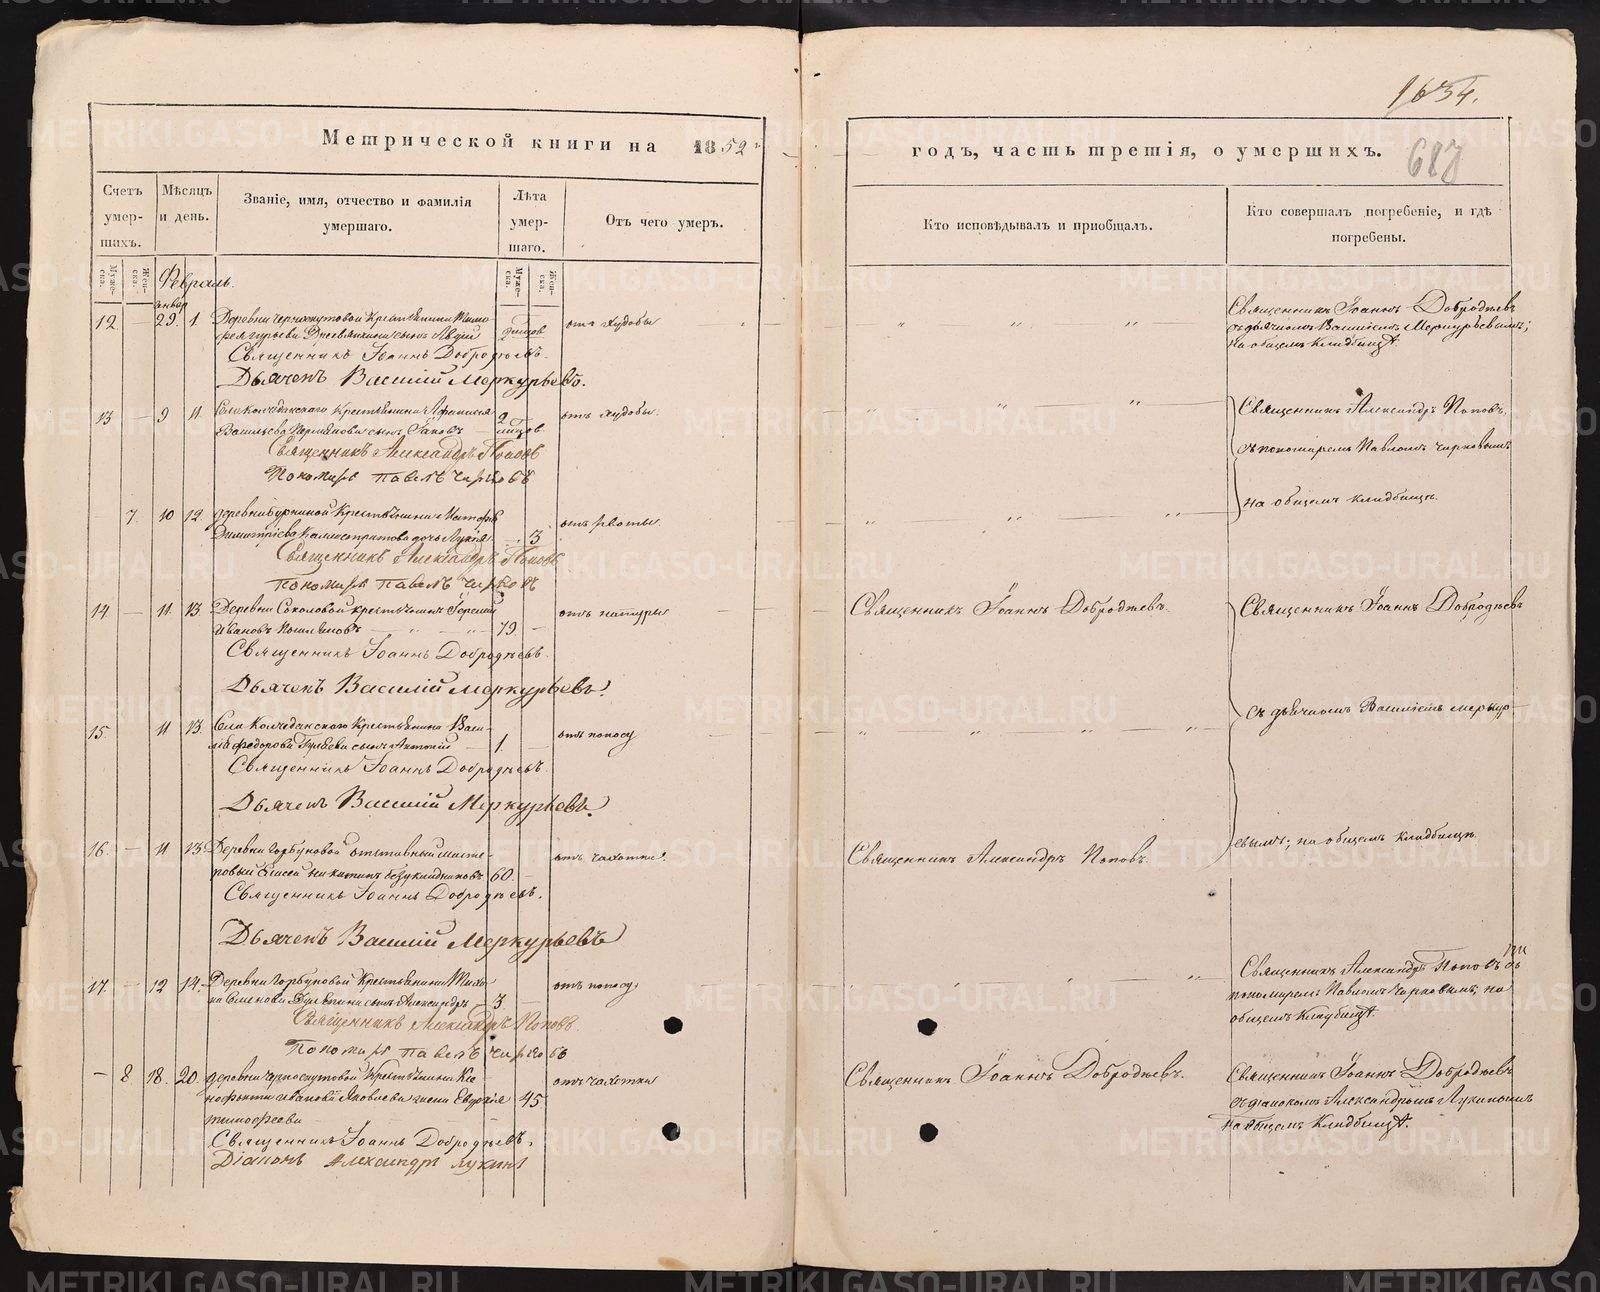 1634.
Метрической книги на 1852
годъ, часть третія, о умершихъ.
Счетъ умер- шихъ.
Мѣсяцъ и день.
Званіе, имя, отчество и фамилія умершаго.
Лѣта умер- шаго.
Отъ чего умеръ.
Кто исповѣдывалъ и пріобщалъ.
Кто совершалъ погребеніе, и гдѣ погребены.
Муже- ска.
Жен- ска.
Муже- ска.
Жен- ска.
Февраль.
12 — 29. 1. Деревни Крестьянина
сынъ Авдій
отъ худобы
Священникъ Іоаннъ Добродѣевъ
съ дьячкомъ Василіемъ Меркурьевымъ;
на общемъ кладбищѣ.
Священникъ Іоаннъ Добродѣевъ.
Дьячекъ Василій Меркурьевъ.
13 — 9 11. Села Колчеданскаго Крестьянина Афанасія
Васильева сынъ Іаковъ 2
отъ худобы.
Священникъ Александръ Поповъ.
съ пономаремъ Павломъ Чирковымъ
на общемъ кладбищѣ.
Священникъ Александръ Поповъ
Пономарь Павелъ Чирковъ
7. 10 12. деревни Бурниной Крестьянина
Димитріева Калистратова дочь 3
отъ рвоты.
Священникъ Александръ Поповъ
Пономарь Павелъ Чирковъ
14. — 11. 13. Деревни Соколовой крестьянинъ
Ивановъ 79. —
отъ натуры
Священникъ Іоаннъ Добродѣевъ.
Священникъ Іоаннъ Добродѣевъ
Священникъ Іоаннъ Добродѣевъ.
Дьячекъ Василій Меркурьевъ.
15. 11 13. Села Колчеданскаго Крестьянина Васи-
лія Федорова сынъ Антоній 1. —
отъ поносу
съ дьячкомъ Василіемъ Меркур-
Священникъ Іоаннъ Добродѣевъ.
Дьячекъ Василій Меркурьевъ.
16. — 11 13. Деревни Горбуновой отставный масте-
ровый 60. —
отъ чахотки.
Священникъ Александръ Поповъ.
евымъ; на общемъ кладбищѣ.
Священникъ Іоаннъ Добродѣевъ.
Дьячекъ Василій Меркурьевъ
17. — 12 14. Деревни Горбуновой Крестьянина
Семенова сынъ Александръ 3 —
отъ поносу
Священникъ Александръ Поповъ съ
пономаремъ Павломъ Чирковымъ; на
общемъ кладбищѣ.
Священникъ Александръ Поповъ.
Пономарь Павелъ Чирковъ
— 8. 18. 20. деревни Крестьянина Ксе-
нофонта Иванова Яковлева жена 45.
Тимофеева
отъ чахотки
Священникъ Іоаннъ Добродѣевъ.
Священникъ Іоаннъ Добродѣевъ
съ діакономъ Александромъ Лукинымъ
на общемъ кладбищѣ.
Священникъ Іоаннъ Добродѣевъ.
Діаконъ Александръ Лукинъ
METRIKI.GASO-URAL.RU